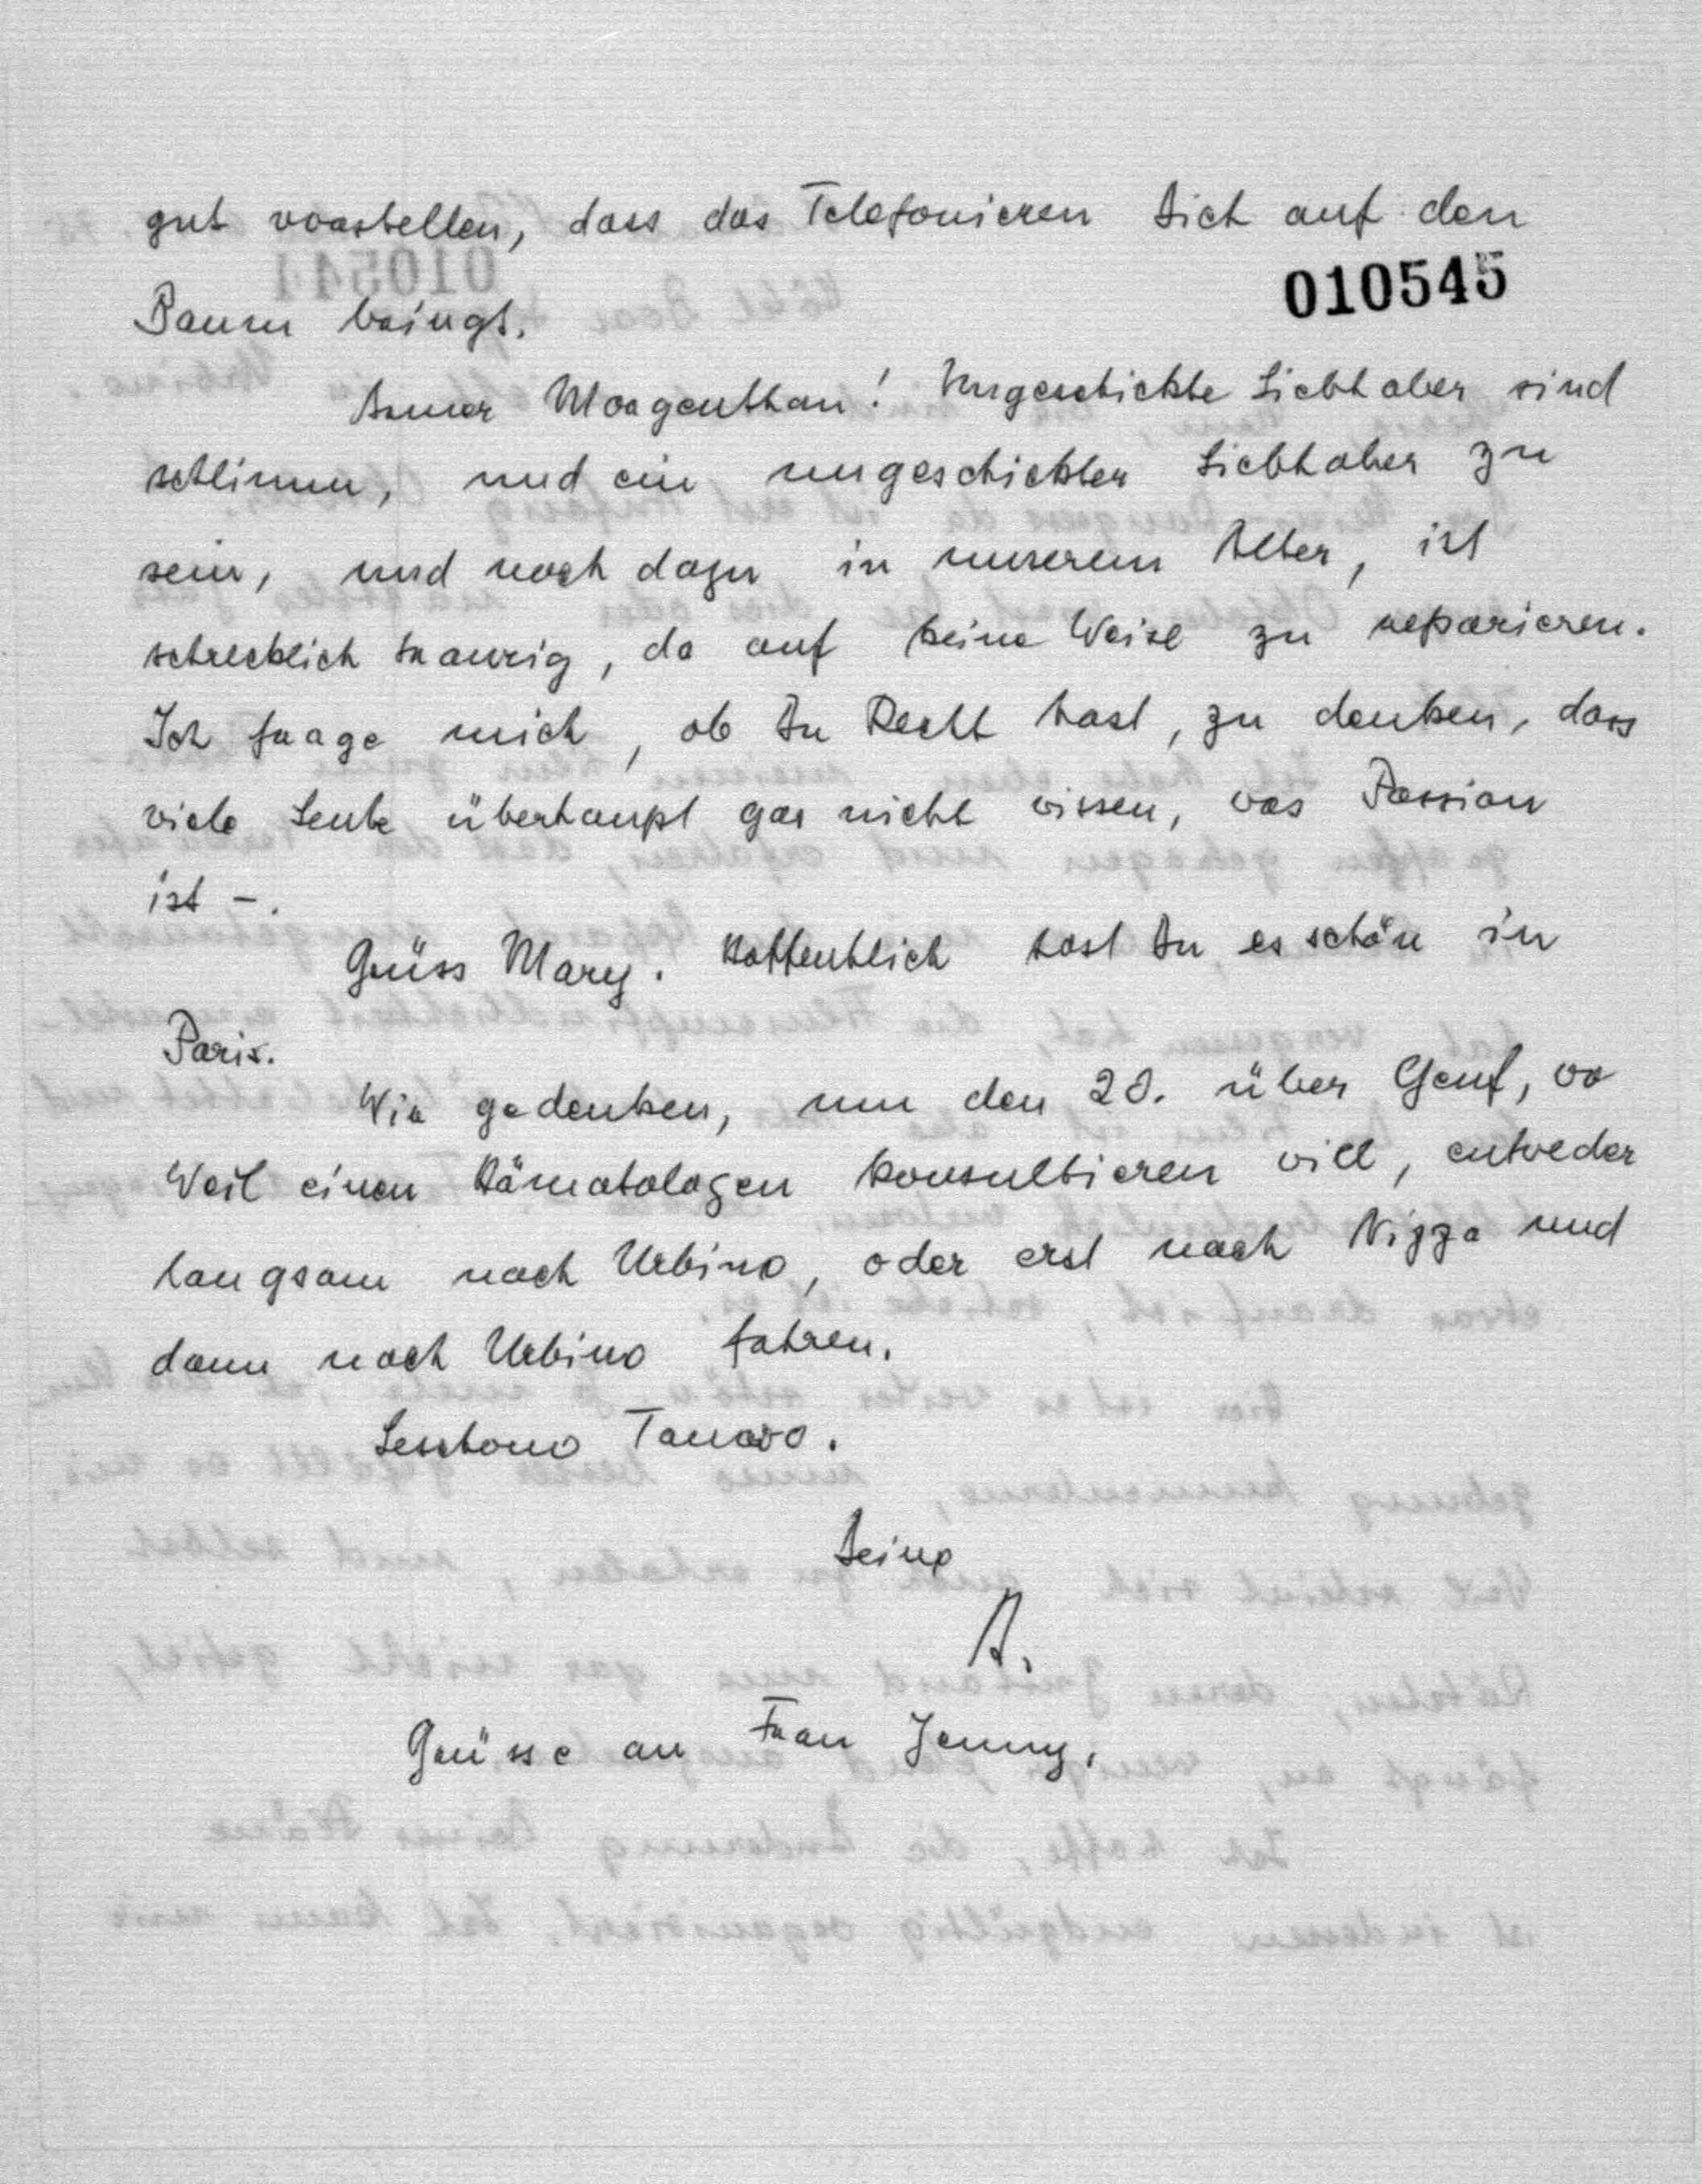 gut vorstellen, dass das Telefonieren Dich auf den
010545
Baum bringt.
Armer Morgenthau! Ungeschickte Liebhaber sind
schlimm, und ein ungeschickter Liebhaber zu
sein, und noch dazu in unserem Alter, ist
schrecklich traurig, da auf keine Weise zu reparieren.
Ich frage mich, ob Du Recht hast, zu denken, dass
viele Leute überhaupt gar nicht wissen, was Passion
ist –.
Grüss Mary. Hoffentlich hast Du es schön in
Paris.
Wir gedenken, um den 20. über Genf, wo
Weil einen Hämatologen konsultieren will, entweder
langsam nach Urbino, oder erst nach Nizza und
dann nach Urbino fahren.
Tanaro.
Deine
A.
Grüsse an Frau Jenny.